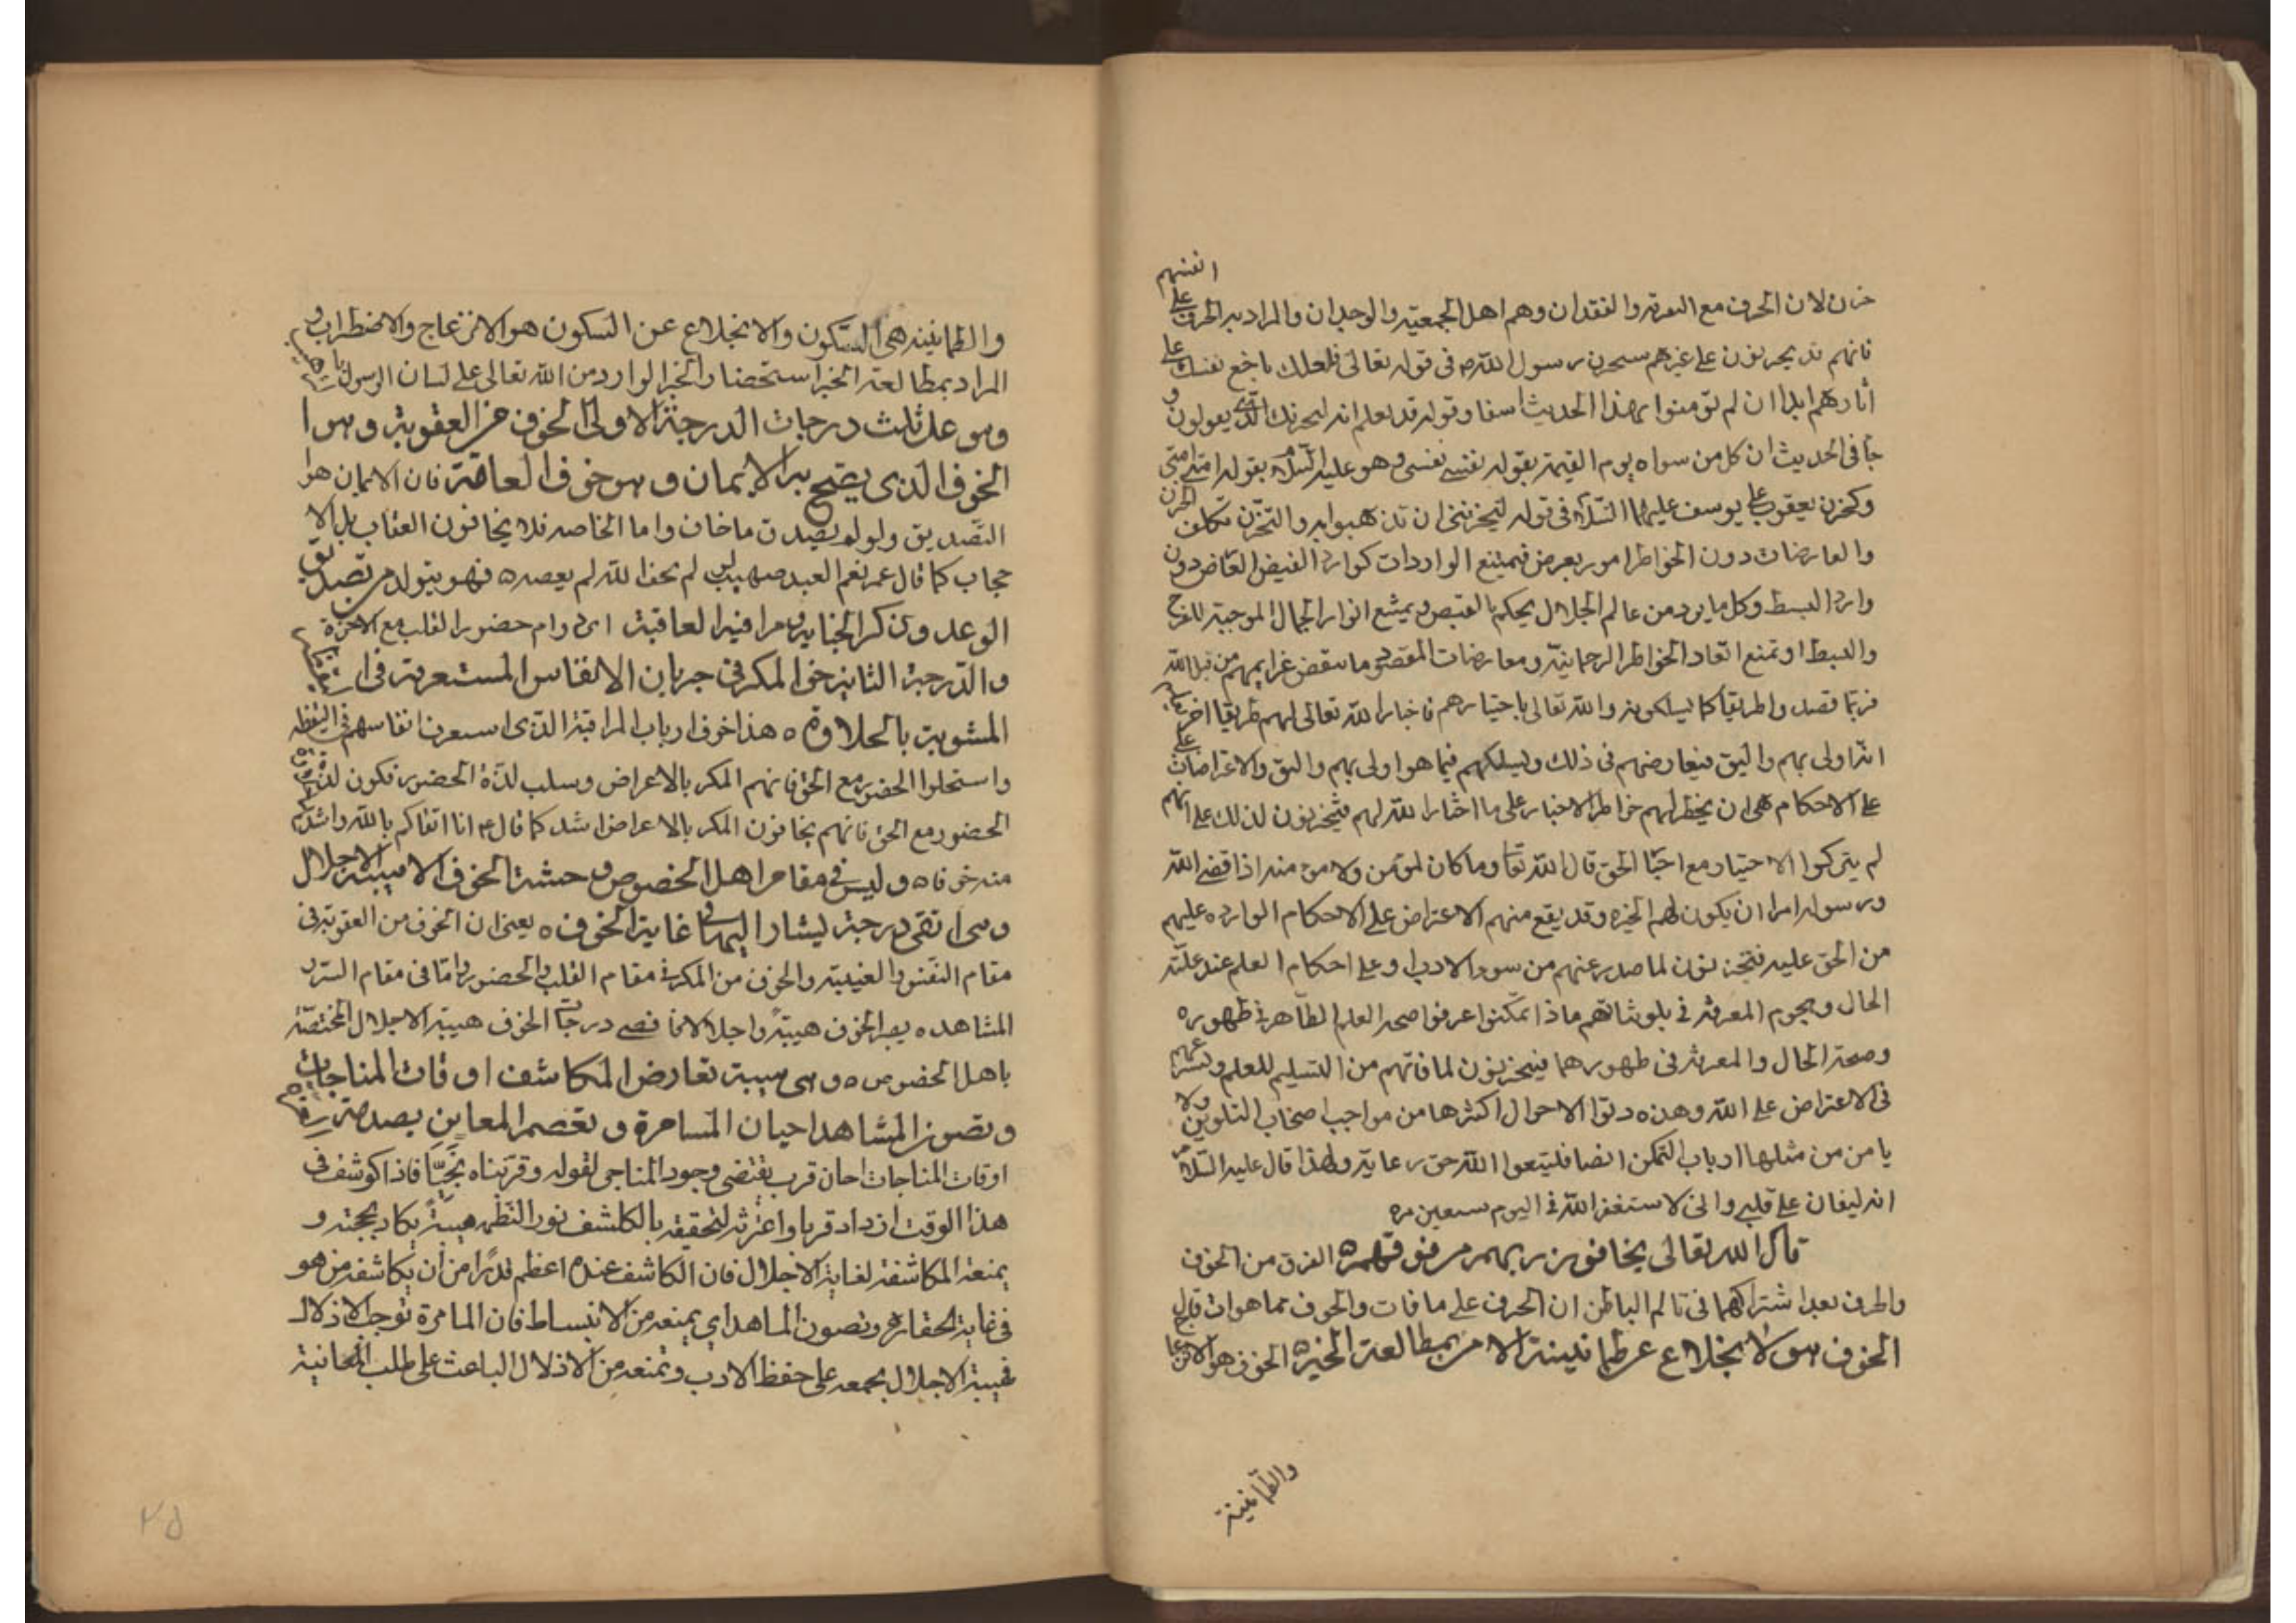 انفسهم
حزن لان الحزن مع التفرقة والفقدان وهم اهل الجمعية والوجدان والمراد به الحزن على
فانهم قد يحزنون على غيرهم كحزن رسول الله ص في قوله تعالى فلعلك باخع نفسك على
آثارهم ابدا ان لم يؤمنوا بهذا الحديث اسفا وقوله قد نعلم انه ليحزنك الذي يقولون و
جا في الحديث ان كل من سواه يوم القيمة يقول نفسي نفسي وهو عليه السلم يقول امتي امتي
وكحزن يعقوب على يوسف عليهما السلم في قوله ليحزنني ان تذهبوا به والتحزن تكلف الحزن
والعارضات دون الخواطر امور يعرض فيمتنع الواردات كوارد الفيض العارض دون
وارد البسط وكل ما يرد من عالم الجلال يحكم بالقبض ويمنع انوار الجمال الموجبة للفرح
والبسط او تمنع اتعاد الخواطر الرحمانية ومعارضات القصود ما ينقض عزايمهم من قبل الله
فربما قصدوا طريقا كما يسلكونه والله تعالى باختيارهم فاختار الله تعالى لهم طريقا اخر
انه اولى بهم واليق فيعارضهم في ذلك ويسلكهم فيما هو اولى بهم واليق والاعتراضات على
على الاحكام هي ان يخطر لهم خواطر الاختيار على ما اختار الله لهم فيحزنون لذلك على انهم
لم يتركوا الاختيار مع اختيار الحق قال الله تعا وما كان لمؤمن ولا مؤمنة اذا قضى الله
ورسوله امرا ان يكون لهم الخيرة وقد يقع منهم الاعتراض على الاحكام الواردة عليهم
من الحق عليه فيحزنون لما صدر عنهم من سوء الادب او على احكام العلم عند غلبة
الحال وهجوم المعرفة في تلويناتهم فاذا تمكنوا عرفوا صحة العلم الظاهر في ظهوره
وصحة الحال والمعرفة في ظهورهما فيحزنون لما فاتهم من التسليم للعلم
في الاعتراض على الله وهذه الاحوال اكثرها من مواجب اصحاب التلوين ولا
يامن من مثلها ارباب التمكن ايضا فليتبعوا الله حق رعايته ولهذا قال عليه السلم
انه ليغان على قلبي واني لاستغفر الله في اليوم سبعين مرة
قال الله تعالى يخافون ربهم من فوقهم الفرق من الخوف
والحزن بعد اشتراكهما في تالم الباطن ان الحزن على ما فات والخوف مما هو ات قوله
الخوف هو الانخلاع عن طمانينة الامن بمطالعة الخبر الخوف هو الانزعا
والطمانينة
والطمانينة هي السكون والانخلاع عن السكون هو الانزعاج والاضطراب و
المراد بمطالعة الخبر استحضار الخبر الوارد من الله تعالى على لسان الرسول
وهو على ثلث درجات الدرجة الاولى الخوف من العقوبة وهو ا
الخوف الذي يصح به الايمان وهو خوف العامة فان الايمان هو
التصديق ولو لم يصدق ما خاف واما الخاصة فلا يخافون العقاب بل الا
حجاب كما قال عمر نعم العبد صهيب لو لم يخف الله لم يعصه فهو يتولد من تصديق
الوعيد وذكر الجناية ومراقبة العاقبة اي دوام حضور القلب مع الاخرة
والدرجة الثانية خوف المكر في جريان الانفاس المستغرقة في
المشوبة بالحلاوة هذا خوف ارباب المراقبة الذي استغرق انفاسهم في اليقظه
واستحلوا الحضور مع الحق فانهم المكر بالاعراض وسلب لذة الحضور فكون لذت
الحضور مع الحق فانهم يخافون المكر بالاعراض اشد كما قال ع انا اتقاكم بالله واشدكم
منه خوفا وليس في مقام اهل الخصوص وحشة الخوف الا هيبة الاجلال
وهي اقصى درجة يشار اليها في غاية الخوف يعني ان الخوف من العقوبة في
مقام النفس والغيبة والخوف من المكر في مقام القلب والحضور واما في مقام السر و
المشاهدة يصير الخوف هيبة واجلالا فاقصى درجات الخوف هيبة الاجلال المختصة
باهل الخصوص وهي هيبة تعارض المكاشف اوقات المناجات
وتصون المشاهد احيان المسامرة وتعصم المعاين بصدمة
اوقات المناجات احيان قرب يقتضي وجود المناجى لقوله وقربناه نجيا فاذا كوشف في
هذا الوقت ازداد قربا واعترته لتحققه بالكاشف نور التظهر هيبة يكاد يحجبه و
يمنعه المكاشفة لغاية الاجلال فان الكاشف عنده اعظم قدرا من ان يكاشفه من هو
في غاية الحقارة وتصون المشاهد اي يمنعه من الانبساط فان المسامرة توجب الاذلال
فهيبة الاجلال يجمعه على حفظ الادب وتمنعه من الاذلال الباعث على طلب